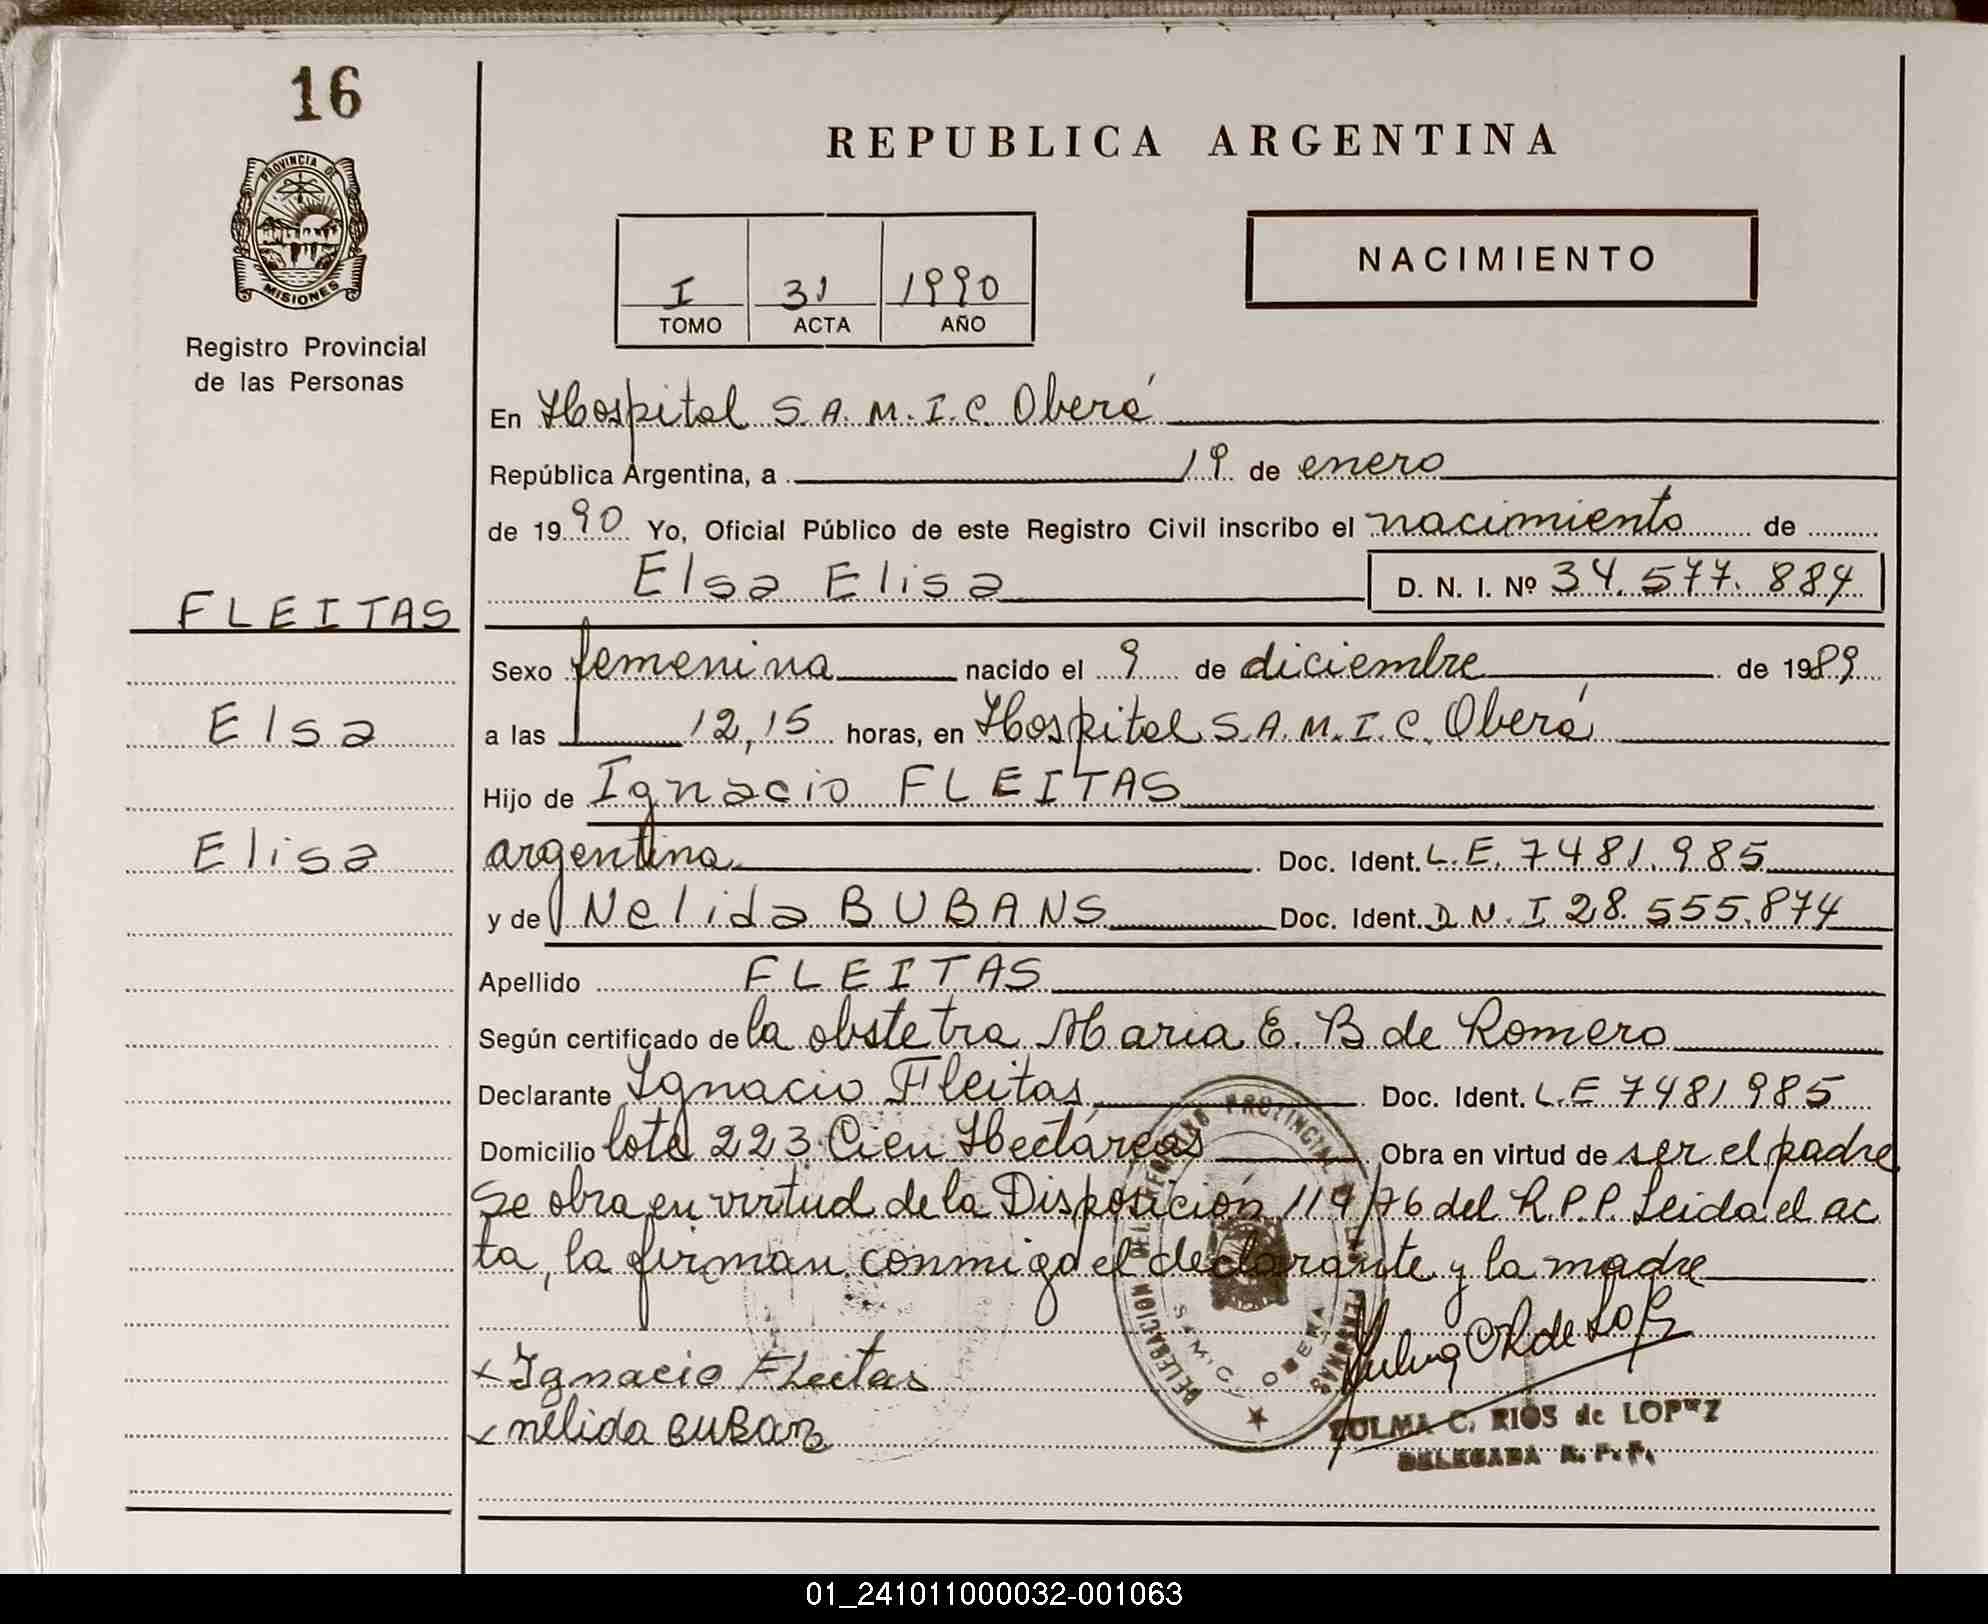 16
PROVINCIA DE
MISIONES
Registro Provincial
de las Personas
REPUBLICA ARGENTINA
I 31 1990
TOMO ACTA AÑO
NACIMIENTO
En Hospital S.A.M.I.C. Oberá
República Argentina, a 19 de enero
de 1990 Yo, Oficial Público de este Registro Civil inscribo el nacimiento de
Elsa Elisa D. N. I. Nº 34.577.884
FLEITAS
Sexo femenina nacido el 9 de diciembre de 1989
Elsa
a las 12,15 horas, en Hospital S.A.M.I.C. Oberá
Hijo de Ignacio FLEITAS
Elisa
argentina Doc. Ident. L.E. 7481.985
y de Nelida BUBANS Doc. Ident. D.N.I 28.555.874
Apellido FLEITAS
Según certificado de la obstetra Maria E. B de Romero
Declarante Ignacio Fleitas Doc. Ident. L.E 7481985
Domicilio lote 223 Cien Hectáreas Obra en virtud de ser el padre
Se obra en virtud de la Disposición 119/76 del R.P.P. Leida el ac
ta, la firman conmigo el declarante y la madre
DELEGACION DEL REGISTRO PROVINCIAL PERSONAS
S.A.M.I.C. OBERA
x Ignacio FLeitas
x nélida BUBANS
ZULMA C. RIOS de LOPEZ
DELEGADA R. P. P.
01_241011000032-001063